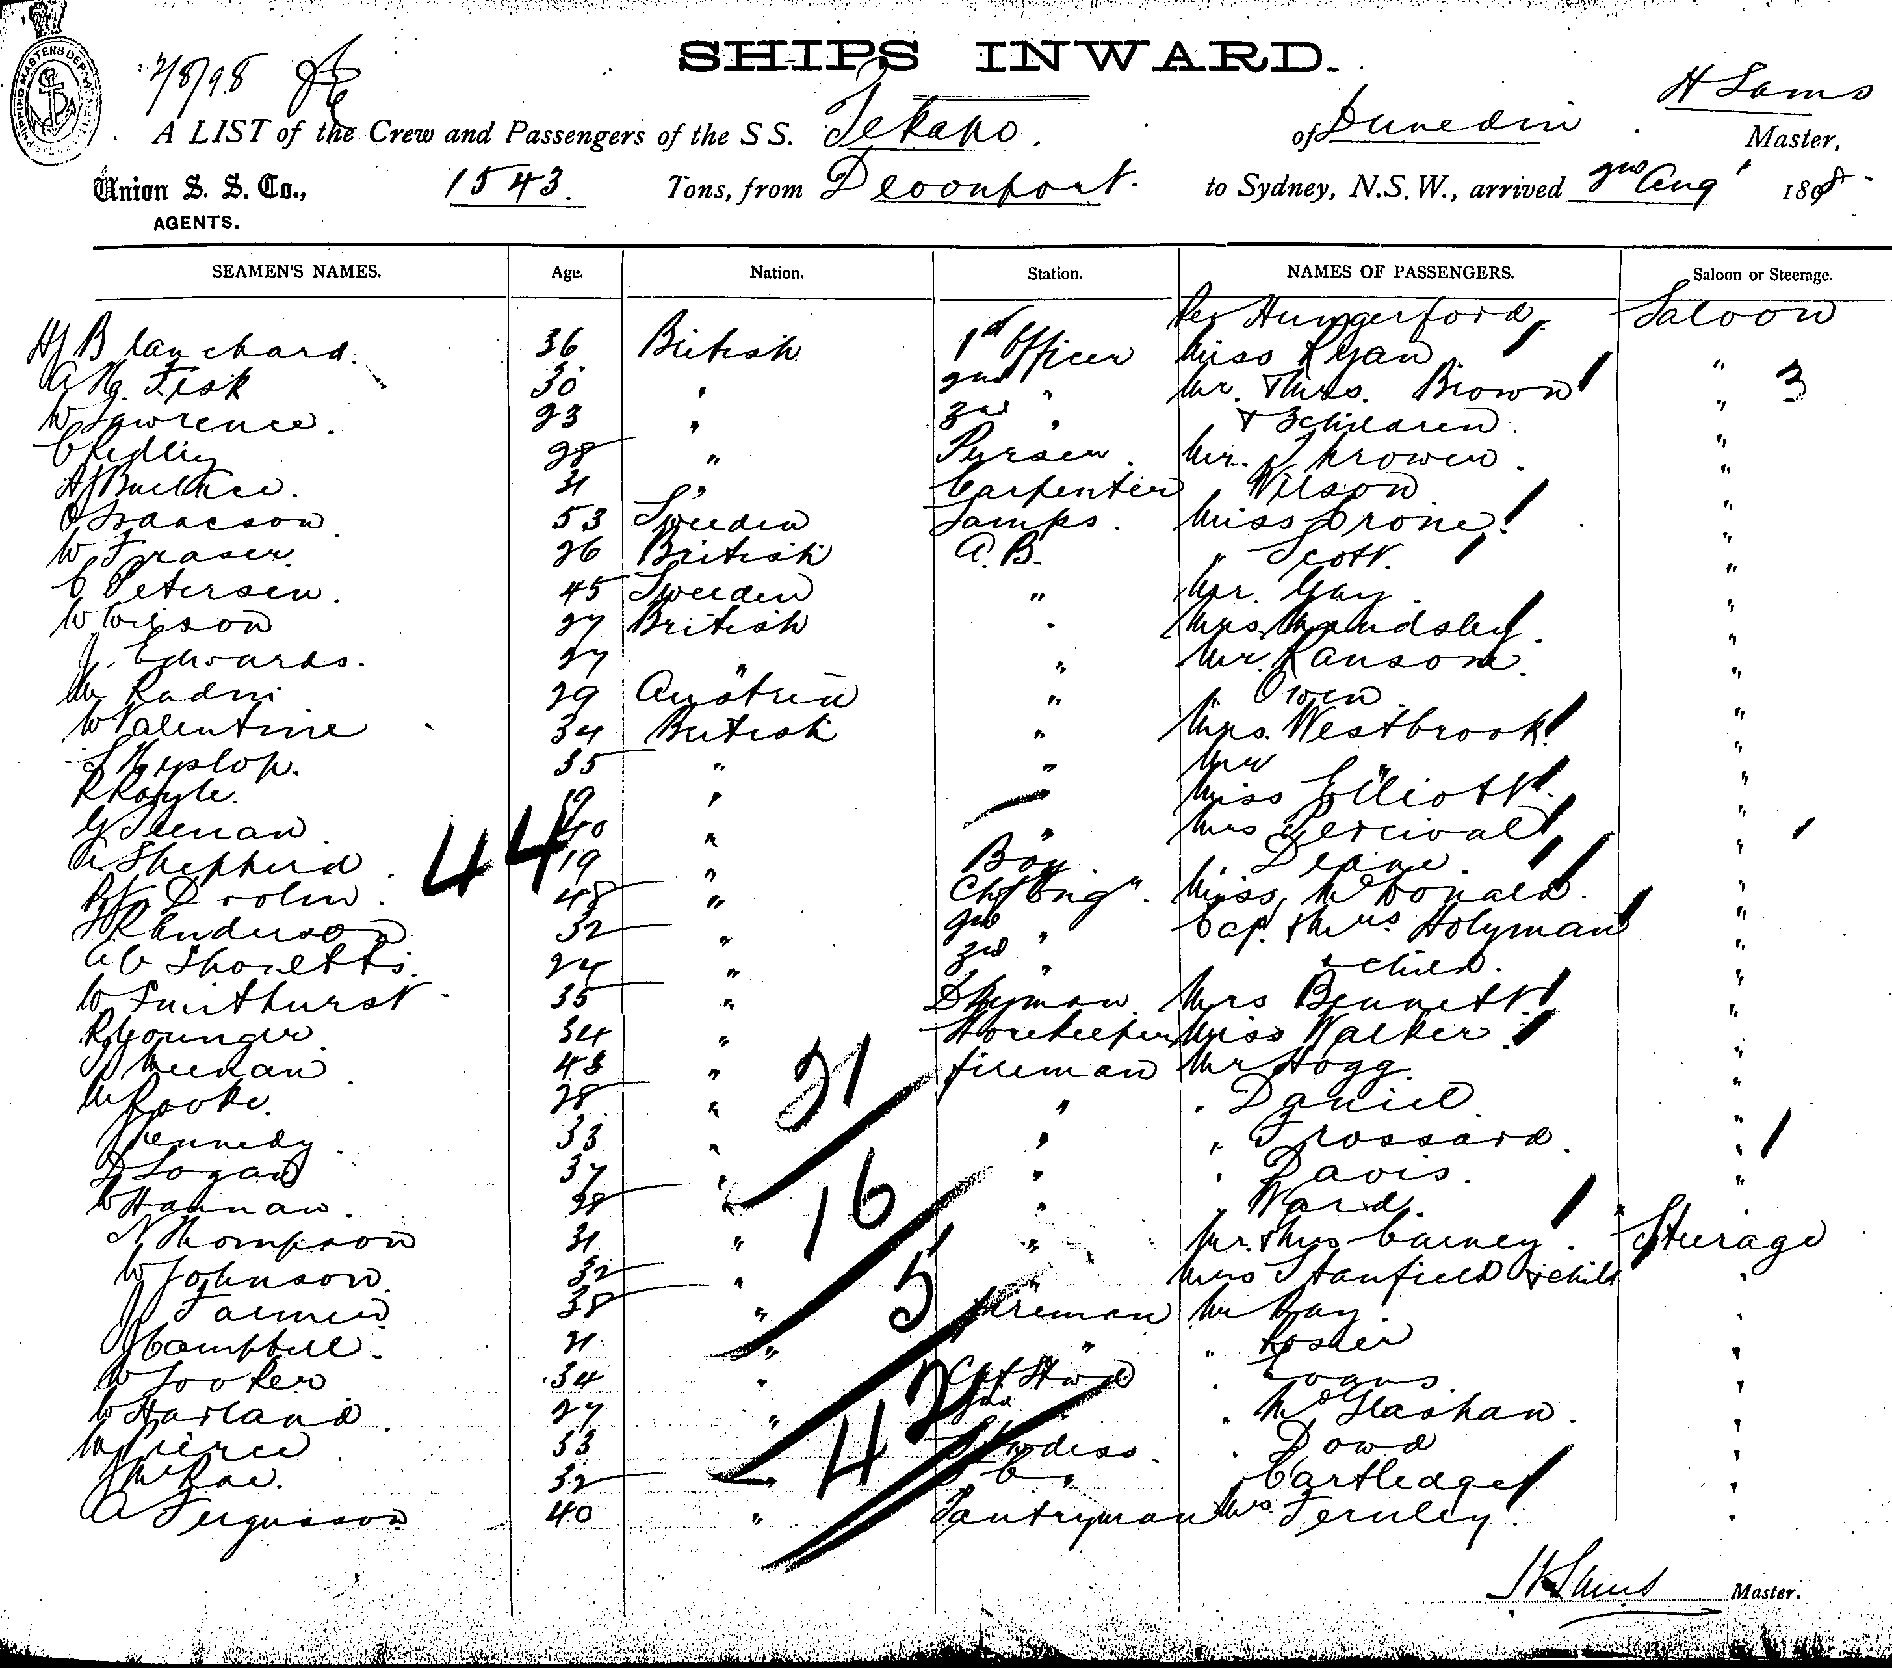 2/8/98
SHIPS INWARD.
H Sams
A LIST of the Crew and Passengers of the SS. Tekapo. of Dunedin Master,
Union S. S. Co., 1543. Tons, from Devonport. to Sydney, N.S.W., arrived 2nd Aug 1898.
AGENTS.
SEAMEN'S NAMES. Age. Nation. Station. NAMES OF PASSENGERS. Saloon or Steerage.
Hungerford Saloon
Blanchard. 36 British 1st Officer Miss Ryan "
Fisk 30 " 2nd " Mr. & Mrs. Brown " 3
W Lawrence. 23 " 3rd " & 3 children "
C Ridley 28 " Purser. Mr. Thrower. "
31 " Carpenter Wilson "
Isaacson 53 Sweden Lamps. Miss Crone "
W Fraser. 26 British A.B. " Scott. "
C Petersen. 45 Sweden " Mr. Gay. "
W Wilson 27 British " Mrs. "
J. Edwards. 27 " " Mr. Ransom. "
Radni 29 Austria " " Owen "
W Valentine 34 British " Mrs. Westbrook "
Hyslop. 35 " " Mr " "
19 " Miss Elliott "
40 " " Mrs Percival "
A Shepherd. 44 19 " Boy. " Deane. "
48 " Chf Eng". Miss McDonald. "
Anderson 32 " 2nd " Cap. & Mrs. Holyman "
24 " 3rd " & child. "
W Smithurst 35 " Dkyman Mrs Bennett "
R Younger. 34 " Storekeeper Miss Walker "
Meehan 43 " fireman Mr Hogg. "
M Rooke. 28 " 21 " " Daniel. "
J Kennedy. 33 " " " Frossard. "
D Logan 37 " " " Davis. "
W Hannan. 28 " 16 " " Ward. "
Thompson 31 " " Mr. & Mrs Carney. Steerage
W Johnson. 32 " " Mrs Stanfield & child "
J Farmer 38 " 5 fireman Mr Ray "
J Campbell. 21 " " " Foster "
W Looker 34 " Chf Stwd " "
W Harland. 27 " 2 2nd " McGlashan. "
Pierce 33 42 Stwdess. " Dowd "
J McRae. 32 " " " Cartledge "
A Fergusson 40 " Pantryman Mrs. Fernley. "
H Sams Master.